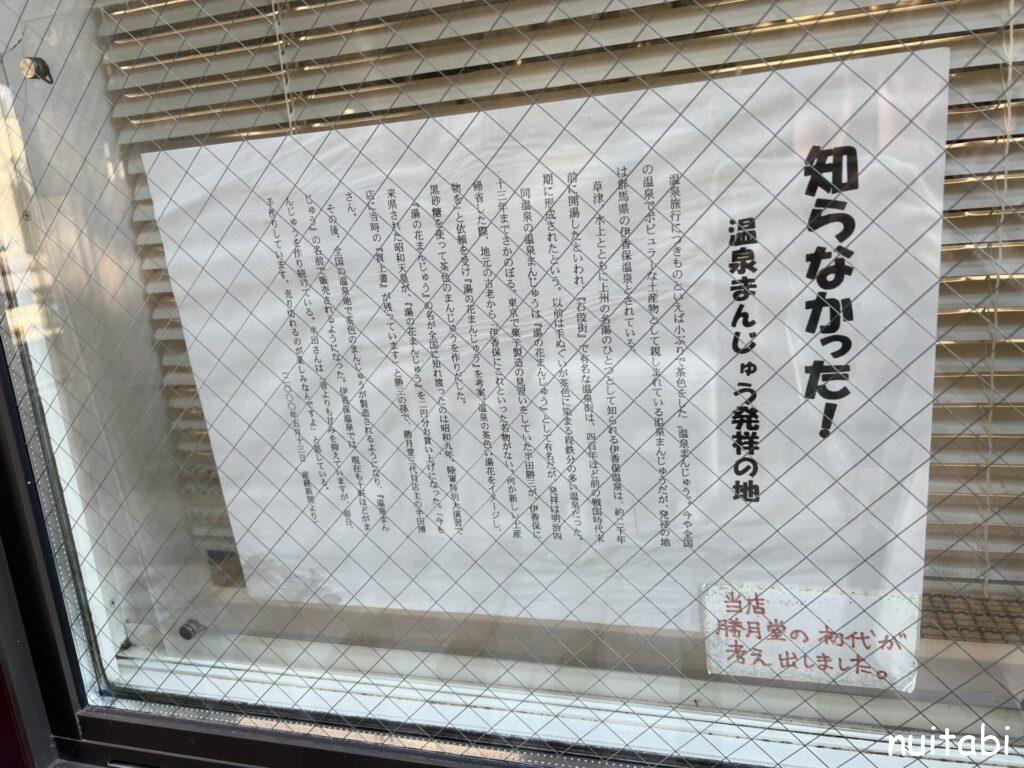 知らなかった！
温泉まんじゅう発祥の地
温泉旅行につきものといえば小ぶりで茶色をした〝温泉まんじゅう〟。今や全国
の温泉でポピュラーな土産物として親しまれている温泉まんじゅうだが、発祥の地
は群馬県の伊香保温泉とされている。
草津、水上とともに上州の名湯のひとつとして知られる伊香保温泉は、約二千年
前に開湯したといわれ、『石段街』で有名な温泉街は、四百年ほど前の戦国時代末
期に形成されたという。以前は手ぬぐいが茶色に染まる程鉄分の多い温泉だった。
同温泉の温泉まんじゅうは『湯の花まんじゅう』として有名だが、発祥は明治四
十三年までさかのぼる。東京で菓子製造の見習いをしていた半田勝三が、伊香保に
帰省した際、地元の古老から、「伊香保にこれといった名物がない。何か新しい土産
物を」と依頼を受け『湯の花まんじゅう』を考案。温泉の茶色い湯花をイメージし、
黒砂糖を使って茶色のまんじゅうを作りだした。
『湯の花まんじゅう』の名が全国に知れ渡ったのは昭和九年。陸軍特別大演習で
来県された昭和天皇が、『湯の花まんじゅう』を二円分お買い上げになった。「今も
店に当時の『買上書』が残っています」と勝三の孫で、勝月堂三代目店主の半田博
さん。
その後、全国の温泉地で茶色のまんじゅうが製造されるようになり、『温泉まん
じゅう』の名前で販売されるようになった。伊香保温泉では、現在も十軒ほどがま
んじゅうを作り続けている。半田さんは、「昔よりも甘みを抑えていますが、毎日、
手作りしています。売り切れるのが楽しみなんですよ」と話している。
二〇〇〇年五月十三日 産経新聞より
当店
勝月堂の初代が
考え出しました。
nuitabi